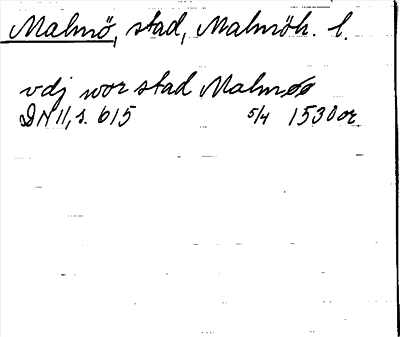 Malmö, stad, Malmöh. l.
vdj wor stad Malmøø
DN 11, s. 615 5/4 1530 or.